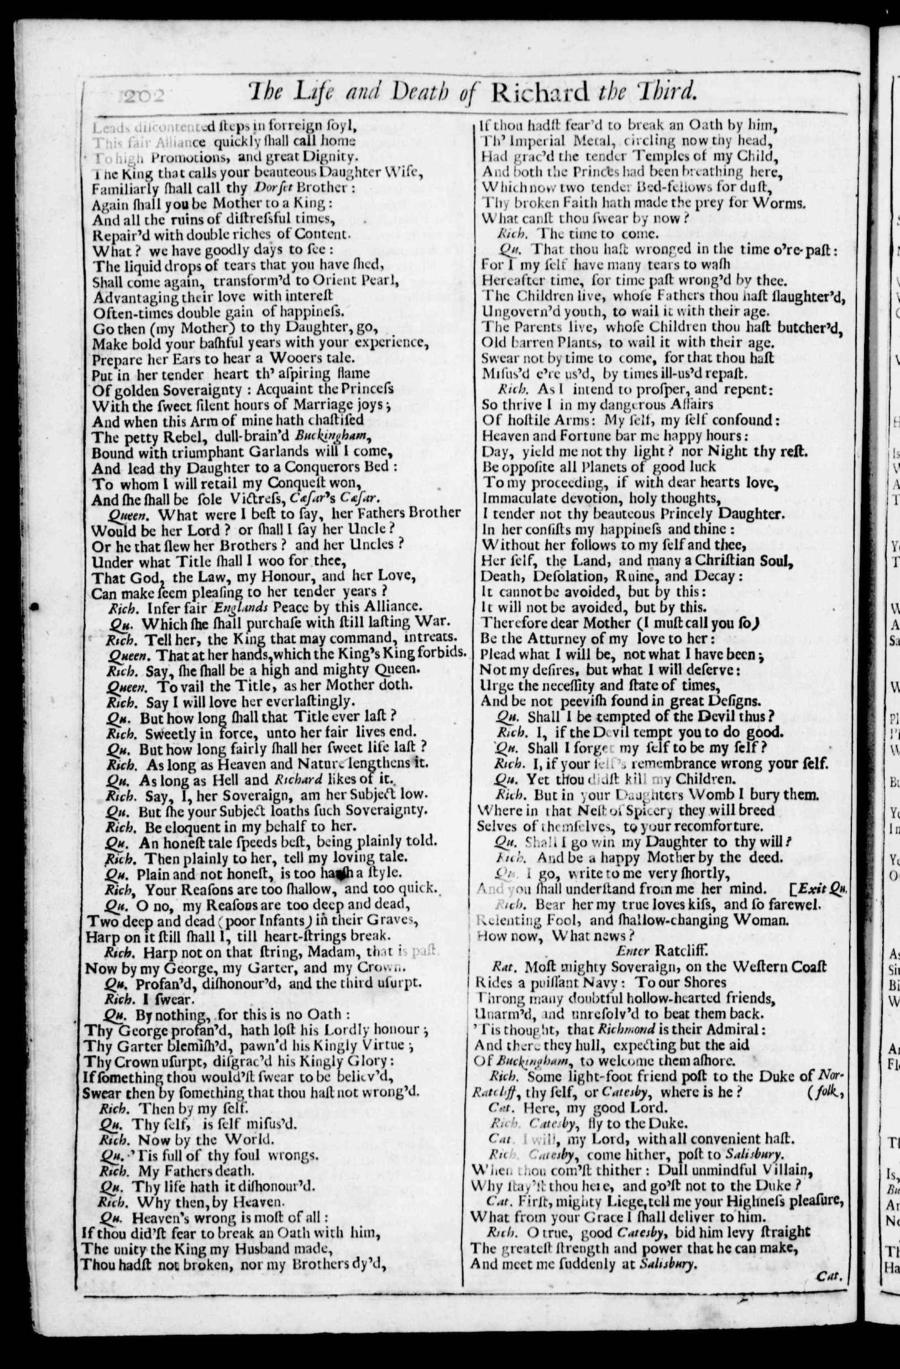 202 The Life and Death of Richard the Third.
Leads discontented steps in forreign soyl,
This fair Alliance quickly shall call home
To high Promotions, and great Dignity.
The King that calls your beauteous Daughter Wife,
Familiarly shall call thy Dorset Brother:
Again shall you be Mother to a King:
And all the ruins of distressful times,
Repair'd with double riches of Content.
What? we have goodly days to see:
The liquid drops of tears that you have shed,
Shall come again, transform'd to Orient Pearl,
Advantaging their love with interest
Often-times double gain of happiness.
Go then (my Mother) to thy Daughter, go,
Make bold your bashful years with your experience,
Prepare her Ears to hear a Wooers tale.
Put in her tender heart th' aspiring flame
Of golden Soveraignty: Acquaint the Princess
With the sweet silent hours of Marriage joys;
And when this Arm of mine hath chastised
The petty Rebel, dull-brain'd Buckingham,
Bound with triumphant Garlands will I come,
And lead thy Daughter to a Conquerors Bed:
To whom I will retail my Conquest won,
And she shall be sole Victress, Cæsar's Cæsar.
Queen. What were I best to say, her Fathers Brother
Would be her Lord? or shall I say her Uncle?
Or he that slew her Brothers? and her Uncles?
Under what Title shall I woo for thee,
That God, the Law, my Honour, and her Love,
Can make seem pleasing to her tender years?
Rich. Infer fair Englands Peace by this Alliance.
Qu. Which she shall purchase with still lasting War.
Rich. Tell her, the King that may command, intreats.
Queen. That at her hands, which the King's King forbids.
Rich. Say, she shall be a high and mighty Queen.
Queen. To vail the Title, as her Mother doth.
Rich. Say I will love her everlastingly.
Qu. But how long shall that Title ever last?
Rich. Sweetly in force, unto her fair lives end.
Qu. But how long fairly shall her sweet life last?
Rich. As long as Heaven and Nature lengthens it.
Qu. As long as Hell and Richard likes of it.
Rich. Say, I, her Soveraign, am her Subject low.
Qu. But she your Subject loaths such Soveraignty.
Rich. Be eloquent in my behalf to her.
Qu. An honest tale speeds best, being plainly told.
Rich. Then plainly to her, tell my loving tale.
Qu. Plain and not honest, is too harsh a style.
Rich, Your Reasons are too shallow, and too quick.
Qu. O no, my Reasons are too deep and dead,
Two deep and dead (poor Infants) in their Graves,
Harp on it still shall I, till heart-strings break.
Rich. Harp not on that string, Madam, that is past.
Now by my George, my Garter, and my Crown.
Qu. Profan'd, dishonour'd, and the third usurpt.
Rich. I swear.
Qu. By nothing, for this is no Oath:
Thy George profan'd, hath lost his Lordly honour;
Thy Garter blemish'd, pawn'd his Kingly Virtue;
Thy Crown usurpt, disgrac'd his Kingly Glory:
If something thou would'st swear to be believ'd,
Swear then by something that thou hast not wrong'd.
Rich. Then by my self.
Qu. Thy self, is self misus'd.
Rich. Now by the World.
Qu. 'Tis full of thy foul wrongs.
Rich. My Fathers death.
Qu. Thy life hath it dishonour'd.
Rich. Why then, by Heaven.
Qu. Heaven's wrong is most of all:
If thou did'st fear to break an Oath with him,
The unity the King my Husband made,
Thou hadst not broken, nor my Brothers dy'd,
If thou hadst fear'd to break an Oath by him,
Th' Imperial Metal, circling now thy head,
Had grac'd the tender Temples of my Child,
And both the Princes had been breathing here,
Which now two tender Bed-fellows for dust,
Thy broken Faith hath made the prey for Worms.
What canst thou swear by now?
Rich. The time to come.
Qu. That thou hast wronged in the time o're-past:
For I my self have many tears to wash
Hereafter time, for time past wrong'd by thee.
The Children live, whose Fathers thou hast slaughter'd,
Ungovern'd youth, to wail it with their age.
The Parents live, whose Children thou hast butcher'd,
Old barren Plants, to wail it with their age.
Swear not by time to come, for that thou hast
Misus'd e're us'd, by times ill-us'd repast.
Rich. As I intend to prosper, and repent:
So thrive I in my dangerous Affairs
Of hostile Arms: My self, my self confound:
Heaven and Fortune bar me happy hours:
Day, yield me not thy light? nor Night thy rest.
Be opposite all Planets of good luck
To my proceeding, if with dear hearts love,
Immaculate devotion, holy thoughts,
I tender not thy beauteous Princely Daughter.
In her consists my happiness and thine:
Without her follows to my self and thee,
Her self, the Land, and many a Christian Soul,
Death, Desolation, Ruine, and Decay:
It cannot be avoided, but by this:
It will not be avoided, but by this.
Therefore dear Mother (I must call you so)
Be the Atturney of my love to her:
Plead what I will be, not what I have been;
Not my desires, but what I will deserve:
Urge the necessity and state of times,
And be not peevish found in great Designs.
Qu. Shall I be tempted of the Devil thus?
Rich. I, if the Devil tempt you to do good.
Qu. Shall I forget my self to be my self?
Rich. I, if your self's remembrance wrong your self.
Qu. Yet thou didst kill my Children.
Rich. But in your Daughters Womb I bury them.
Where in that Nest of Spicery they will breed
Selves of themselves, to your recomforture.
Qu. Shall I go win my Daughter to thy will?
Rich. And be a happy Mother by the deed.
Qu. I go, write to me very shortly,
And you shall understand from me her mind. [Exit Qu.
Rich. Bear her my true loves kiss, and so farewel.
Relenting Fool, and shallow-changing Woman.
How now, What news?
Enter Ratcliff.
Rat. Most mighty Soveraign, on the Western Coast
Rides a puissant Navy: To our Shores
Throng many doubtful hollow-hearted friends,
Unarm'd, and unresolv'd to beat them back.
'Tis thought, that Richmond is their Admiral:
And there they hull, expecting but the aid
Of Buckingham, to welcome them ashore.
Rich. Some light-foot friend post to the Duke of Nor-
Ratcliff, thy self, or Catesby, where is he? (folk,
Cat. Here, my good Lord.
Rich. Catesby, fly to the Duke.
Cat. I will, my Lord, with all convenient hast.
Rich. Catesby, come hither, post to Salisbury.
When thou com'st thither: Dull unmindful Villain,
Why stay'st thou here, and go'st not to the Duke?
Cat. First, mighty Liege, tell me your Highness pleasure,
What from your Grace I shall deliver to him.
Rich. O true, good Catesby, bid him levy straight
The greatest strength and power that he can make,
And meet me suddenly at Salisbury.
Cat.